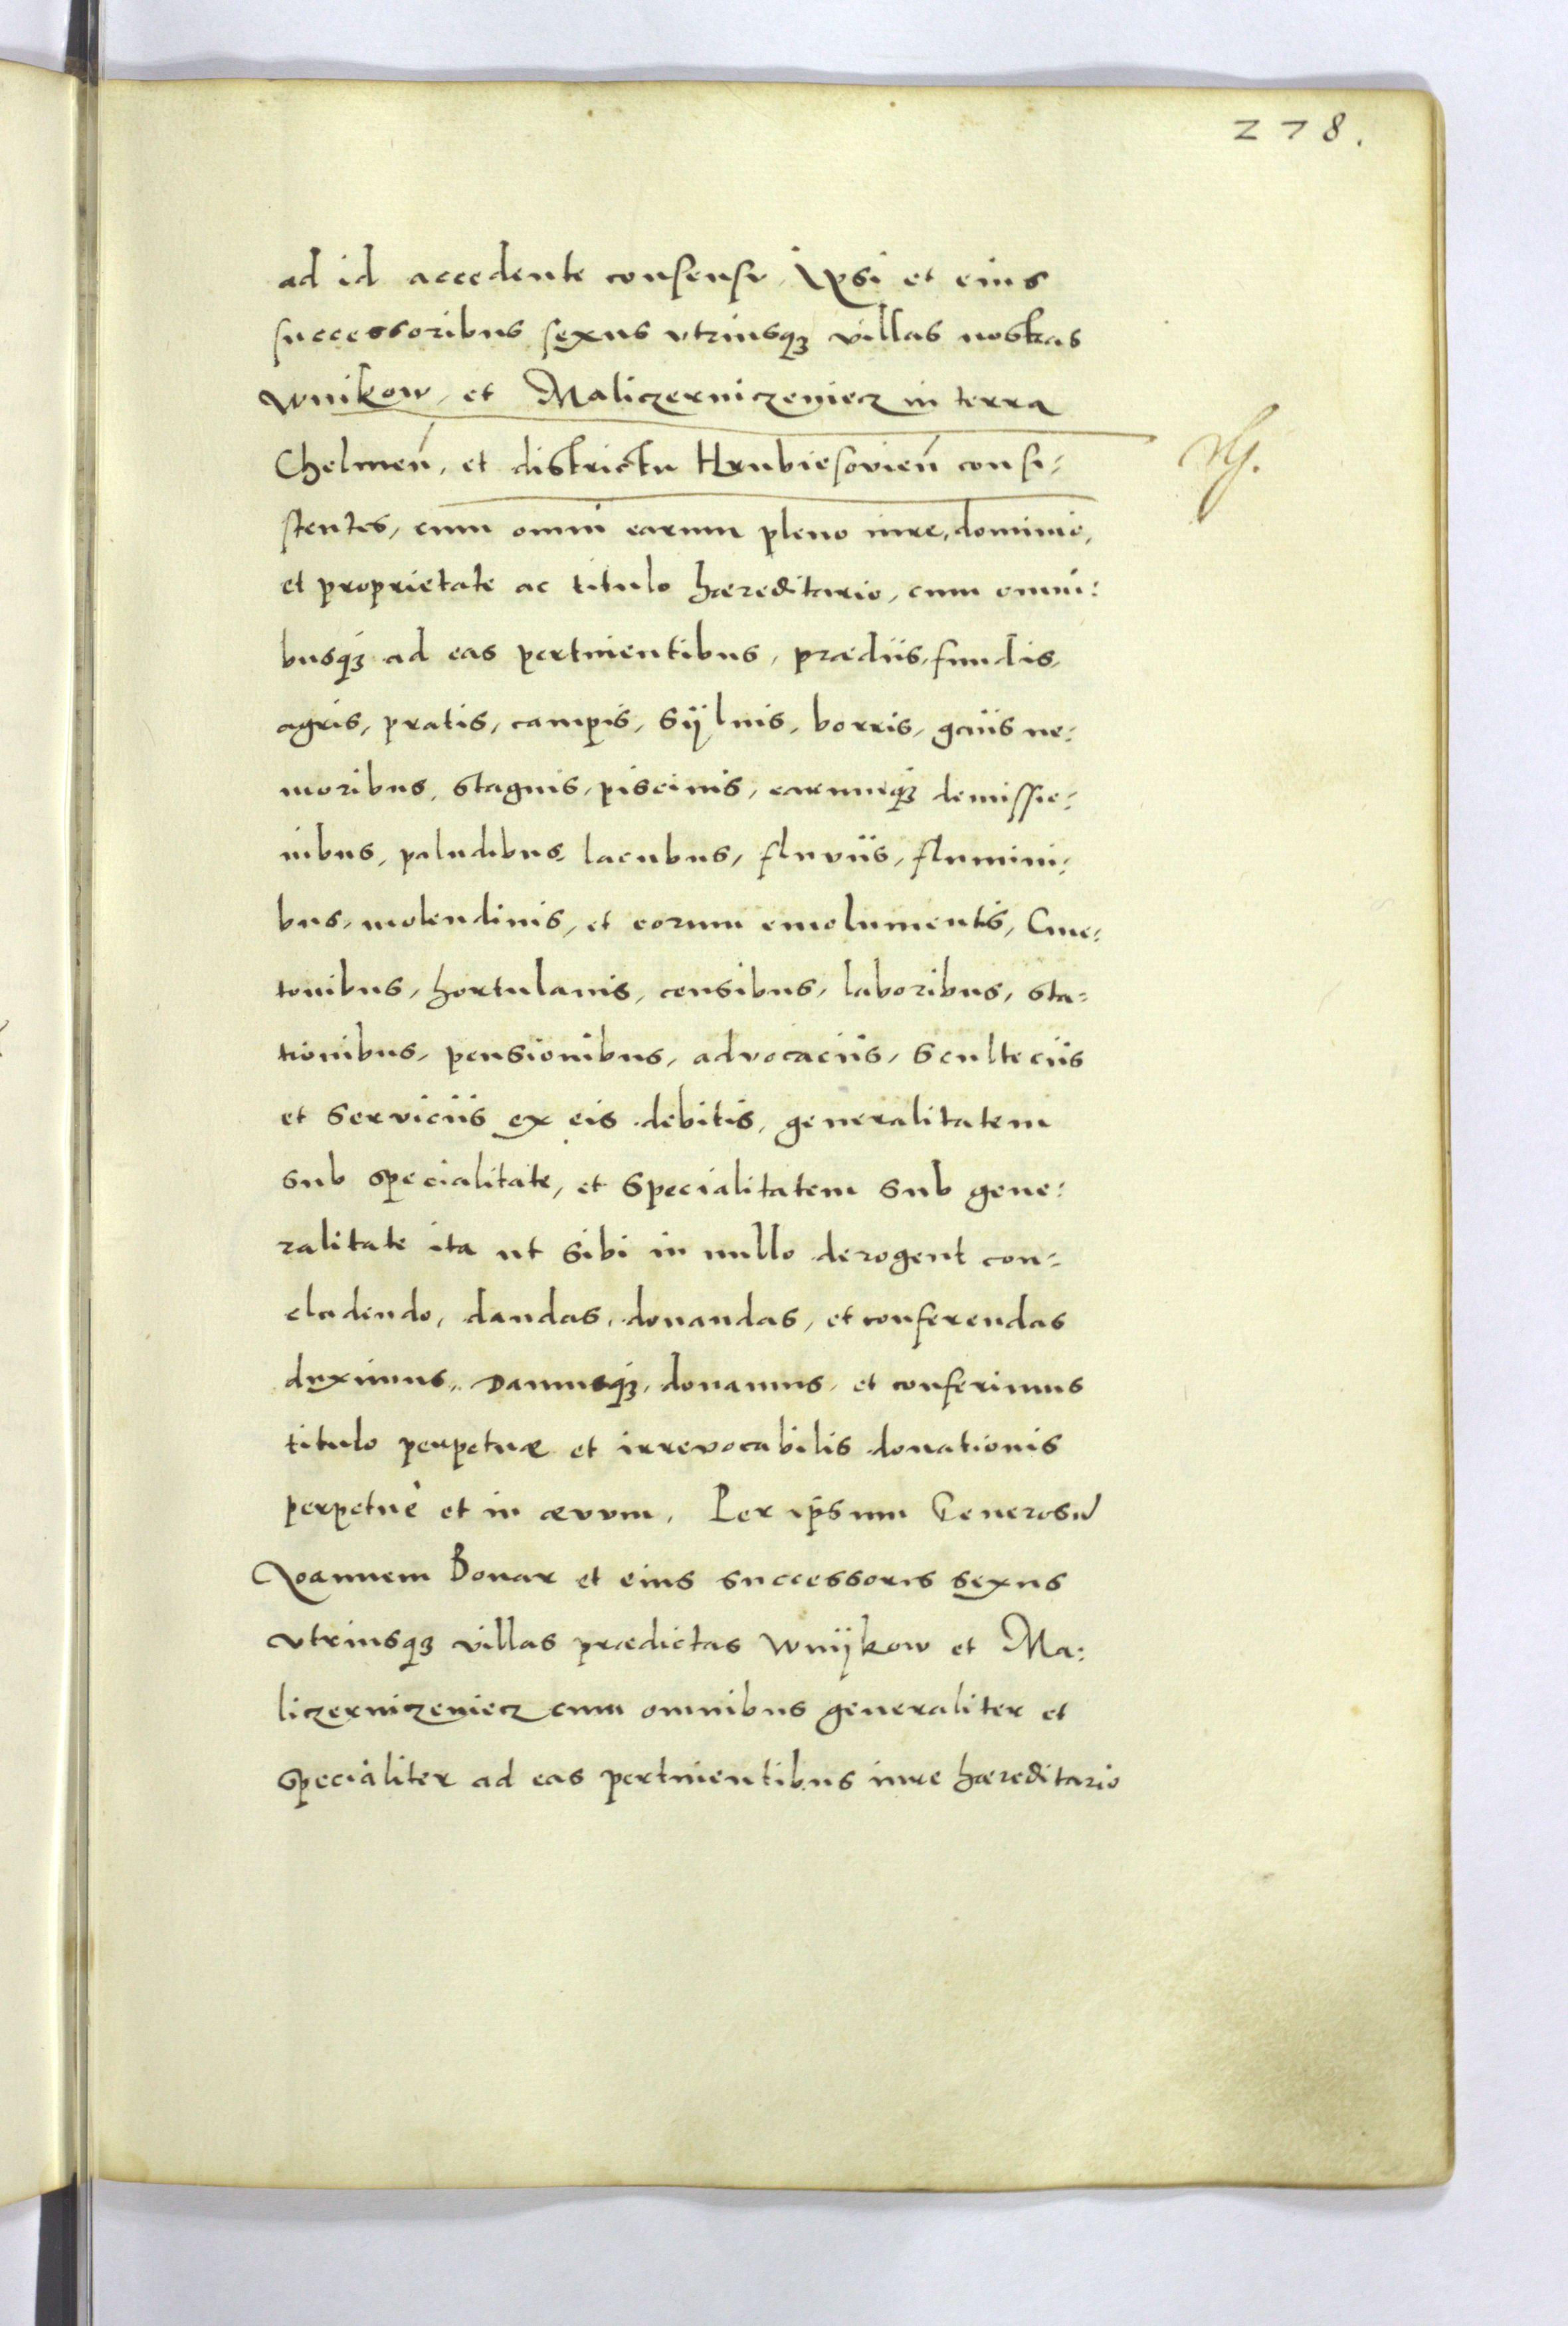 278.
ad id accedente consensu, Ipsi et eius
successoribus sexus vtriusqȝ villas nostras
Wnikow, et Maliczerniczeniecz in terra
Chelmeń, et districtu Hrubiesovień consi:
stentes, cum omni earum pleno iure, dominio,
et proprietate ac titulo hæreditario, cum omni:
busqȝ ad eas pertinentibus, prædiis, fundis,
agris, pratis, campis, sÿluis, borris, gaiis ne:
moribus, stagnis, piscinis, earumqȝ demissio:
nibus, paludibus, lacubus, fluviis, flumini:
bus, molendinis, et eorum emolumentis, Cme:
tonibus, hortulanis, censibus, laboribus, sta:
tionibus, pensionibus, advocaciis, sculteciis
et serviciis ex eis debitis, generalitatem
sub specialitate, et specialitatem sub gene:
ralitate ita ut sibi in nullo derogent con:
cludendo, dandas, donandas, et conferendas
duximus, Damusqȝ, donamus, et conferimus
titulo perpetuæ et irrevocabilis donationis
perpetuè et in ævum. Per ipsum Generosũ
Ioannem Bonar et eius successores sexus
vtriusqȝ villas prædictas Wnÿkow et Ma:
liczerniczeniecz cum omnibus generaliter et
specialiter ad eas pertinentibus iure hæreditario